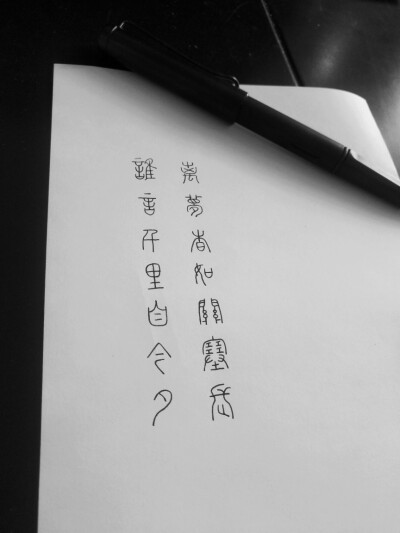 誰言千里自今夕
离夢杳如關塞長